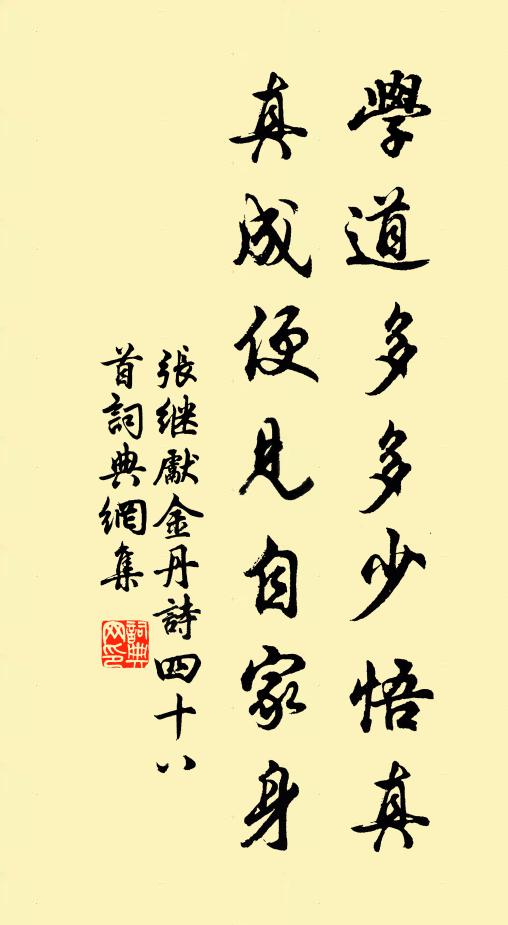 學道多多少悟真
真成便見自家身
張継獻金丹詩四十八
首詞典網集
詞典
网印